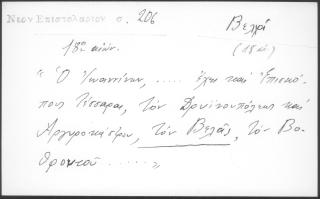 Νεον Επιστολαριον σ. 206
Βελλά
(18 αἰ.)
18ος αἰών.
"Ὁ Ἰωαννίνων, ..... ἔχει καὶ Ἐπισκό-
πους τέσσαρας, τὸν Δρυϊνουπόλεως καὶ
Ἀργυροκάστρου, τὸν Βελᾶς, τὸν Βο-
θροντοῦ ..... "